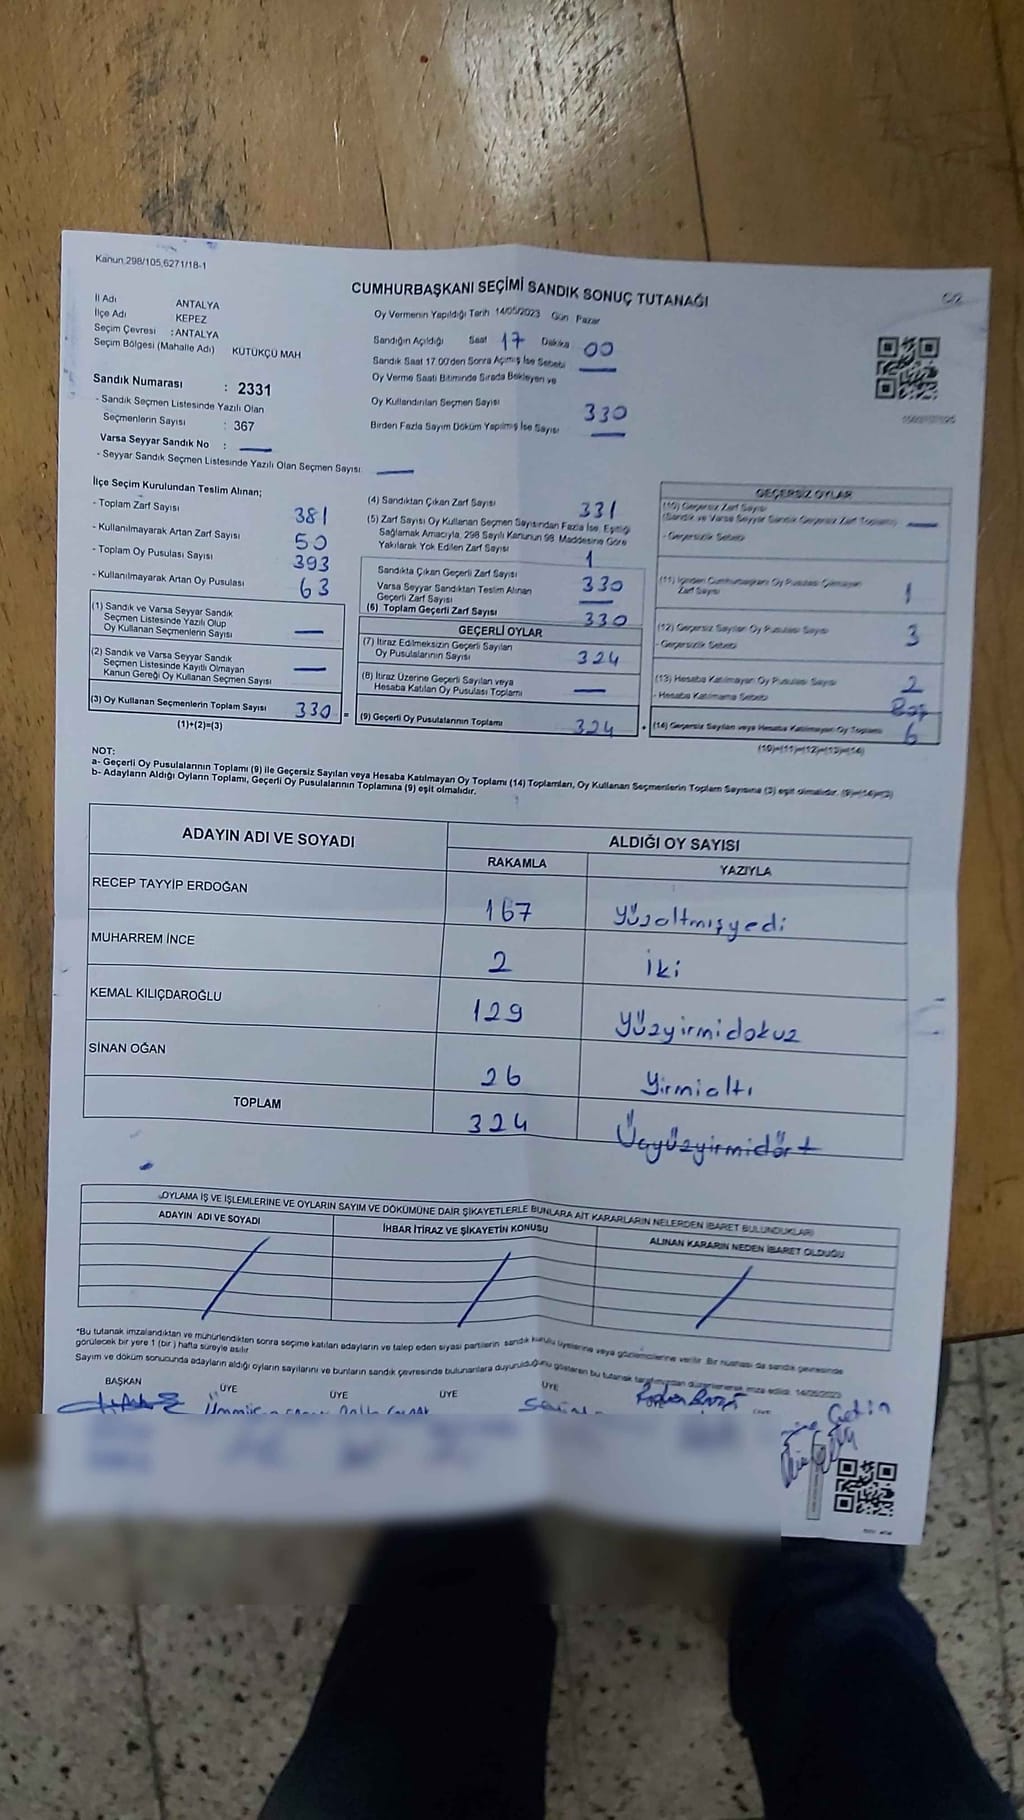 Kanun 298/105,6271/18-1
CUMHURBAŞKANI SEÇİMİ SANDIK SONUÇ TUTANAĞI
C/2
İl Adı ANTALYA
İlçe Adı KEPEZ
Seçim Çevresi : ANTALYA
Seçim Bölgesi (Mahalle Adı) KÜTÜKÇÜ MAH
Sandık Numarası : 2331
- Sandık Seçmen Listesinde Yazılı Olan
Seçmenlerin Sayısı : 367
Varsa Seyyar Sandık No :
- Seyyar Sandık Seçmen Listesinde Yazılı Olan Seçmen Sayısı
Oy Vermenin Yapıldığı Tarih 14/05/2023 Gün Pazar
Sandığın Açıldığı Saat 17 Dakika 00
Sandık Saat 17:00'den Sonra Açımış İse Sebebi
Oy Verme Saati Bitiminde Sırada Bekleyen ve
Oy Kullandırılan Seçmen Sayısı 330
Birden Fazla Sayım Döküm Yapılmış İse Sayısı
İlçe Seçim Kurulundan Teslim Alınan;
- Toplam Zarf Sayısı 381
- Kullanılmayarak Artan Zarf Sayısı 50
- Toplam Oy Pusulası Sayısı 393
- Kullanılmayarak Artan Oy Pusulası 63
(1) Sandık ve Varsa Seyyar Sandık
Seçmen Listesinde Yazılı Olup
Oy Kullanan Seçmenlerin Sayısı
(2) Sandık ve Varsa Seyyar Sandık
Seçmen Listesinde Kayıtlı Olmayan
Kanun Gereği Oy Kullanan Seçmen Sayısı
(3) Oy Kullanan Seçmenlerin Toplam Sayısı 330 =
(1)+(2)=(3)
(4) Sandıktan Çıkan Zarf Sayısı 331
(5) Zarf Sayısı Oy Kullanan Seçmen Sayısından Fazla İse, Eşitliği
Sağlamak Amacıyla, 298 Sayılı Kanunun 98. Maddesine Göre
Yakılarak Yok Edilen Zarf Sayısı 1
Sandıkta Çıkan Geçerli Zarf Sayısı 330
Varsa Seyyar Sandıktan Teslim Alınan
Geçerli Zarf Sayısı
(6) Toplam Geçerli Zarf Sayısı 330
GEÇERLİ OYLAR
(7) İtiraz Edilmeksizin Geçerli Sayılan
Oy Pusulalarının Sayısı 324
(8) İtiraz Üzerine Geçerli Sayılan veya
Hesaba Katılan Oy Pusulası Toplamı
(9) Geçerli Oy Pusulalarının Toplamı 324 +
GEÇERSİZ OYLAR
(10) Geçersiz Zarf Sayısı
(Sandık ve Varsa Seyyar Sandık Geçersiz Zarf Toplamı)
- Geçersizlik Sebebi
(11) İçinden Cumhurbaşkanı Oy Pusulası Çıkmayan
Zarf Sayısı 1
(12) Geçersiz Sayılan Oy Pusulası Sayısı 3
- Geçersizlik Sebebi
(13) Hesaba Katılmayan Oy Pusulası Sayısı 2
- Hesaba Katılmama Sebebi Boş
(14) Geçersiz Sayılan veya Hesaba Katılmayan Oy Toplamı 6
(10)+(11)+(12)+(13)=(14)
NOT:
a- Geçerli Oy Pusulalarının Toplamı (9) ile Geçersiz Sayılan veya Hesaba Katılmayan Oy Toplamı (14) Toplamları, Oy Kullanan Seçmenlerin Toplam Sayısına (3) eşit olmalıdır. (9)+(14)=(3)
b- Adayların Aldığı Oyların Toplamı, Geçerli Oy Pusulalarının Toplamına (9) eşit olmalıdır.
ADAYIN ADI VE SOYADI ALDIĞI OY SAYISI
RAKAMLA YAZIYLA
RECEP TAYYİP ERDOĞAN 167 Yüzaltmışyedi
MUHARREM İNCE 2 İki
KEMAL KILIÇDAROĞLU 129 Yüzyirmidokuz
SİNAN OĞAN 26 Yirmialtı
TOPLAM 324 Üçyüzyirmidört
OYLAMA İŞ VE İŞLEMLERİNE VE OYLARIN SAYIM VE DÖKÜMÜNE DAİR ŞİKAYETLERLE BUNLARA AİT KARARLARIN NELERDEN İBARET BULUNDUKLARI
ADAYIN ADI VE SOYADI İHBAR İTİRAZ VE ŞİKAYETİN KONUSU ALINAN KARARIN NEDEN İBARET OLDUĞU
*Bu tutanak imzalandıktan ve mühürlendikten sonra seçime katılan adayların ve talep eden siyasi partilerin sandık kurulu üyelerine veya gözlemcilerine verilir. Bir nüshası da sandık çevresinde
görülecek bir yere 1 (bir) hafta süreyle asılır
Sayım ve döküm sonucunda adayların aldığı oyların sayılarını ve bunların sandık çevresinde bulunanlara duyurulduğunu gösteren bu tutanak tarafımızdan düzenlenerek imza edildi. 14/05/2023
BAŞKAN ÜYE ÜYE ÜYE ÜYE
Çetin